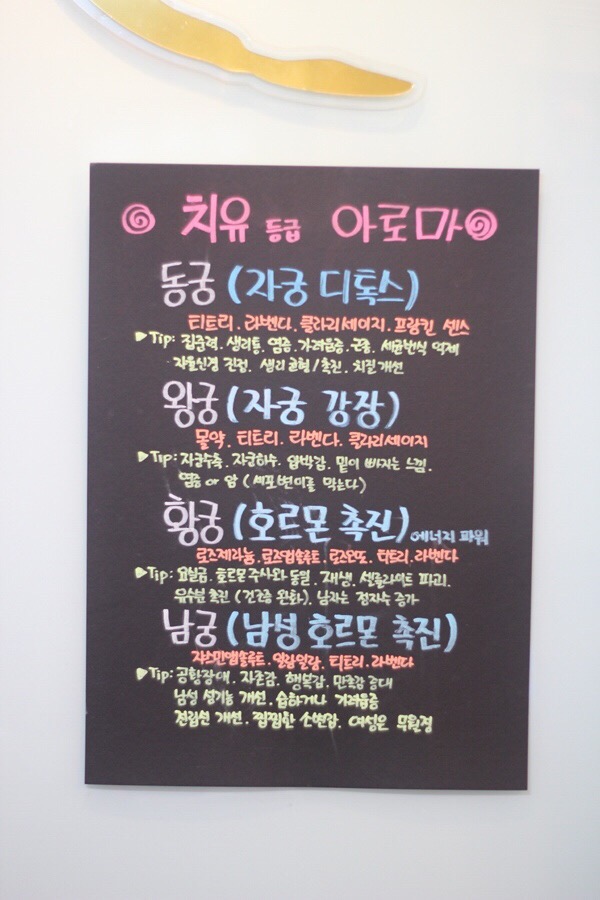 치유 등급 아로마
동궁 (자궁 디톡스)
티트리. 라벤다. 클라리세이지. 프랑킨 센스
Tip: 면역력. 생리통. 염증. 가려움증. 균종. 세균번식 억제
자율신경 진정. 생리 균형/촉진. 치질 개선
왕궁 (자궁 강장)
몰약. 티트리. 라벤다. 클라리세이지
Tip: 자궁수축. 자궁하수. 압박감. 밑이 빠지는 느낌.
염증 or 암 (세포변이를 막는다)
황궁 (호르몬 촉진) 에너지 파워
로즈제라늄. 로즈앱솔루트. 로즈오또. 티트리. 라벤다
Tip: 요실금. 호르몬 주사와 동일. 재생. 셀룰라이트 파괴.
유수분 촉진 (건조증 완화). 남자는 정자수 증가
남궁 (남성 호르몬 촉진)
자스민앱솔루트. 일랑일랑. 티트리. 라벤다
Tip: 공황장애. 자존감. 행복감. 만족감 증대
남성 성기능 개선. 습하거나 가려움증
전립선 개선. 찝찝한 소변감. 여성은 무월경